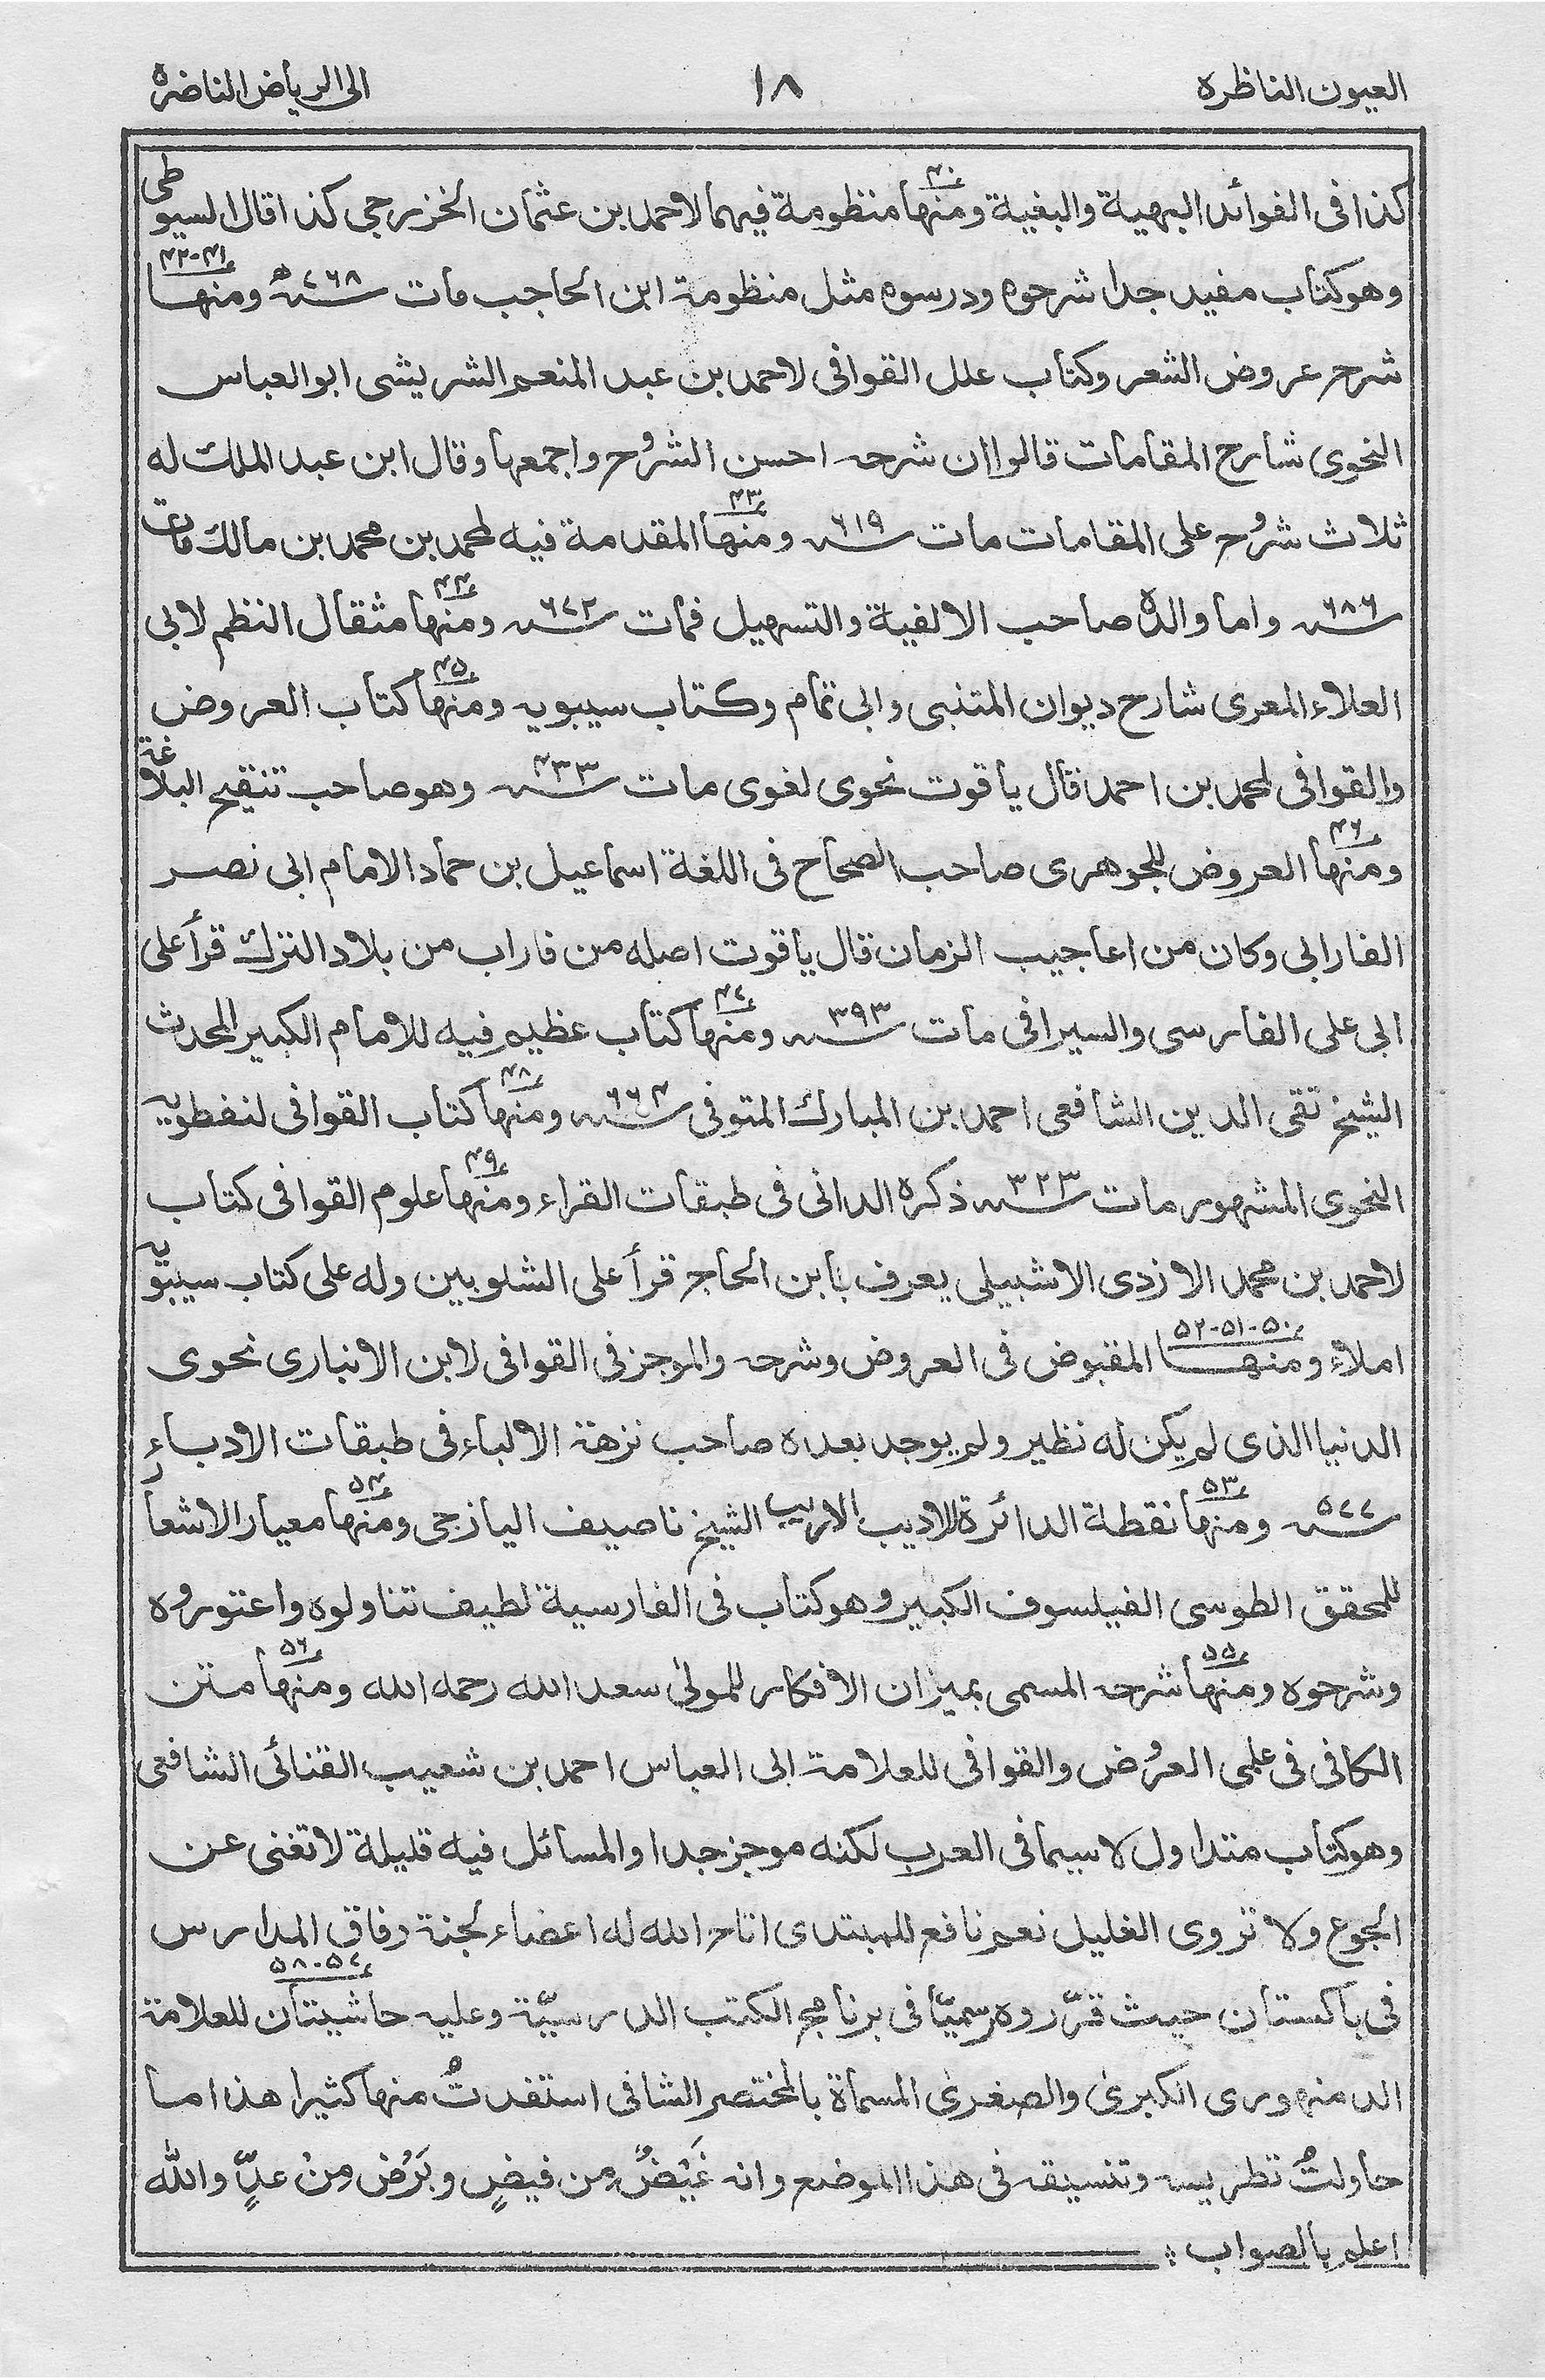 العيون الناظرة
١٨
الى الرياض الناضرة
كذا فى الفوائد البهية والبغية ومنها ٤٠ منظومة فيهما لاحمد بن عثمان الخزرجي كذا قال السيوطى
وهو كتاب مفيد جدا شرحوه ودرسوه مثل منظومة ابن الحاجب مات سنة ٧٦٨ ه‍ ومنها ٤١-٤٢
شرح عروض الشعر وكتاب علل القوافى لاحمد بن عبد المنعم الشريشى ابو العباس
النحوى شارح المقامات قالوا ان شرحه احسن الشروح واجمعها وقال ابن عبد الملك له
ثلاث شروح على المقامات مات سنة ٦١٩ ومنها ٤٣ المقدمة فيه لمحمد بن محمد بن مالك مات
سنة ٦٨٦ واما والده صاحب الالفية والتسهيل فمات سنة ٦٧٢ ومنها ٤٤ مثقال النظم لابى
العلاء المعرى شارح ديوان المتنبى وابى تمام وكتاب سيبويه ومنها ٤٥ كتاب العروض
والقوافى لمحمد بن احمد قال ياقوت نحوى لغوى مات سنة ٤٣٣ وهو صاحب تنقيح البلاغة
ومنها ٤٦ العروض للجوهرى صاحب الصحاح فى اللغة اسماعيل بن حماد الامام ابى نصر
الفارابى وكان من اعاجيب الزمان قال ياقوت اصله من فاراب من بلاد الترك قرأ على
ابى على الفارسى والسيرافى مات سنة ٣٩٣ ومنها ٤٧ كتاب عظيم فيه للامام الكبير المحدث
الشيخ تقى الدين الشافعى احمد بن المبارك المتوفى سنة ٦٦٤ ومنها ٤٨ كتاب القوافى لنفطويه
النحوى المشهور مات سنة ٣٢٣ ذكره الدانى فى طبقات القراء ومنها ٤٩ علوم القوافى كتاب
لاحمد بن محمد الازدى الاشبيلى يعرف بابن الحاج قرأ على الشلوبين وله على كتاب سيبويه
املاء ومنها ٥٠-٥١-٥٢ المقبوض فى العروض وشرحه والموجز فى القوافى لابن الانبارى نحوى
الدنيا الذى لم يكن له نظير ولم يوجد بعده صاحب نزهة الالباء فى طبقات الادباء
سنة ٥٧٧ ومنها ٥٣ نقطة الدائرة للاديب الاريب الشيخ ناصيف اليازجى ومنها ٥٤ معيار الاشعار
للمحقق الطوسى الفيلسوف الكبير وهو كتاب فى الفارسية لطيف تناولوه واعتوروه
وشرحوه ومنها ٥٥ شرحه المسمى بميزان الافكار للمولىٰ سعد الله رحمه الله ومنها ٥٦ متن
الكافى فى علمى العروض والقوافى للعلامة ابى العباس احمد بن شعيب القنائى الشافعى
وهو كتاب متداول لاسيما فى العرب لكنه موجز جدا والمسائل فيه قليلة لا تغنى عن
الجوع ولا تروى الغليل نعم نافع للمبتدى اتاح الله له اعضاء لجنة وفاق المدارس
فى باكستان حيث قرّروه رسميّا فى برنامج الكتب الدرسيّة وعليه حاشيتان ٥٧-٥٨ للعلامة
الدمنهورى الكبرىٰ والصغرىٰ المسماة بالمختصر الشافى استفدتُ منها كثيرا هذا ما
حاولتُ تطريسه وتنسيقه فى هذا الموضع وانه غَيْضٌ مِن فيضٍ وبَرْض مِنْ عدٍّ والله
اعلم بالصواب ؞